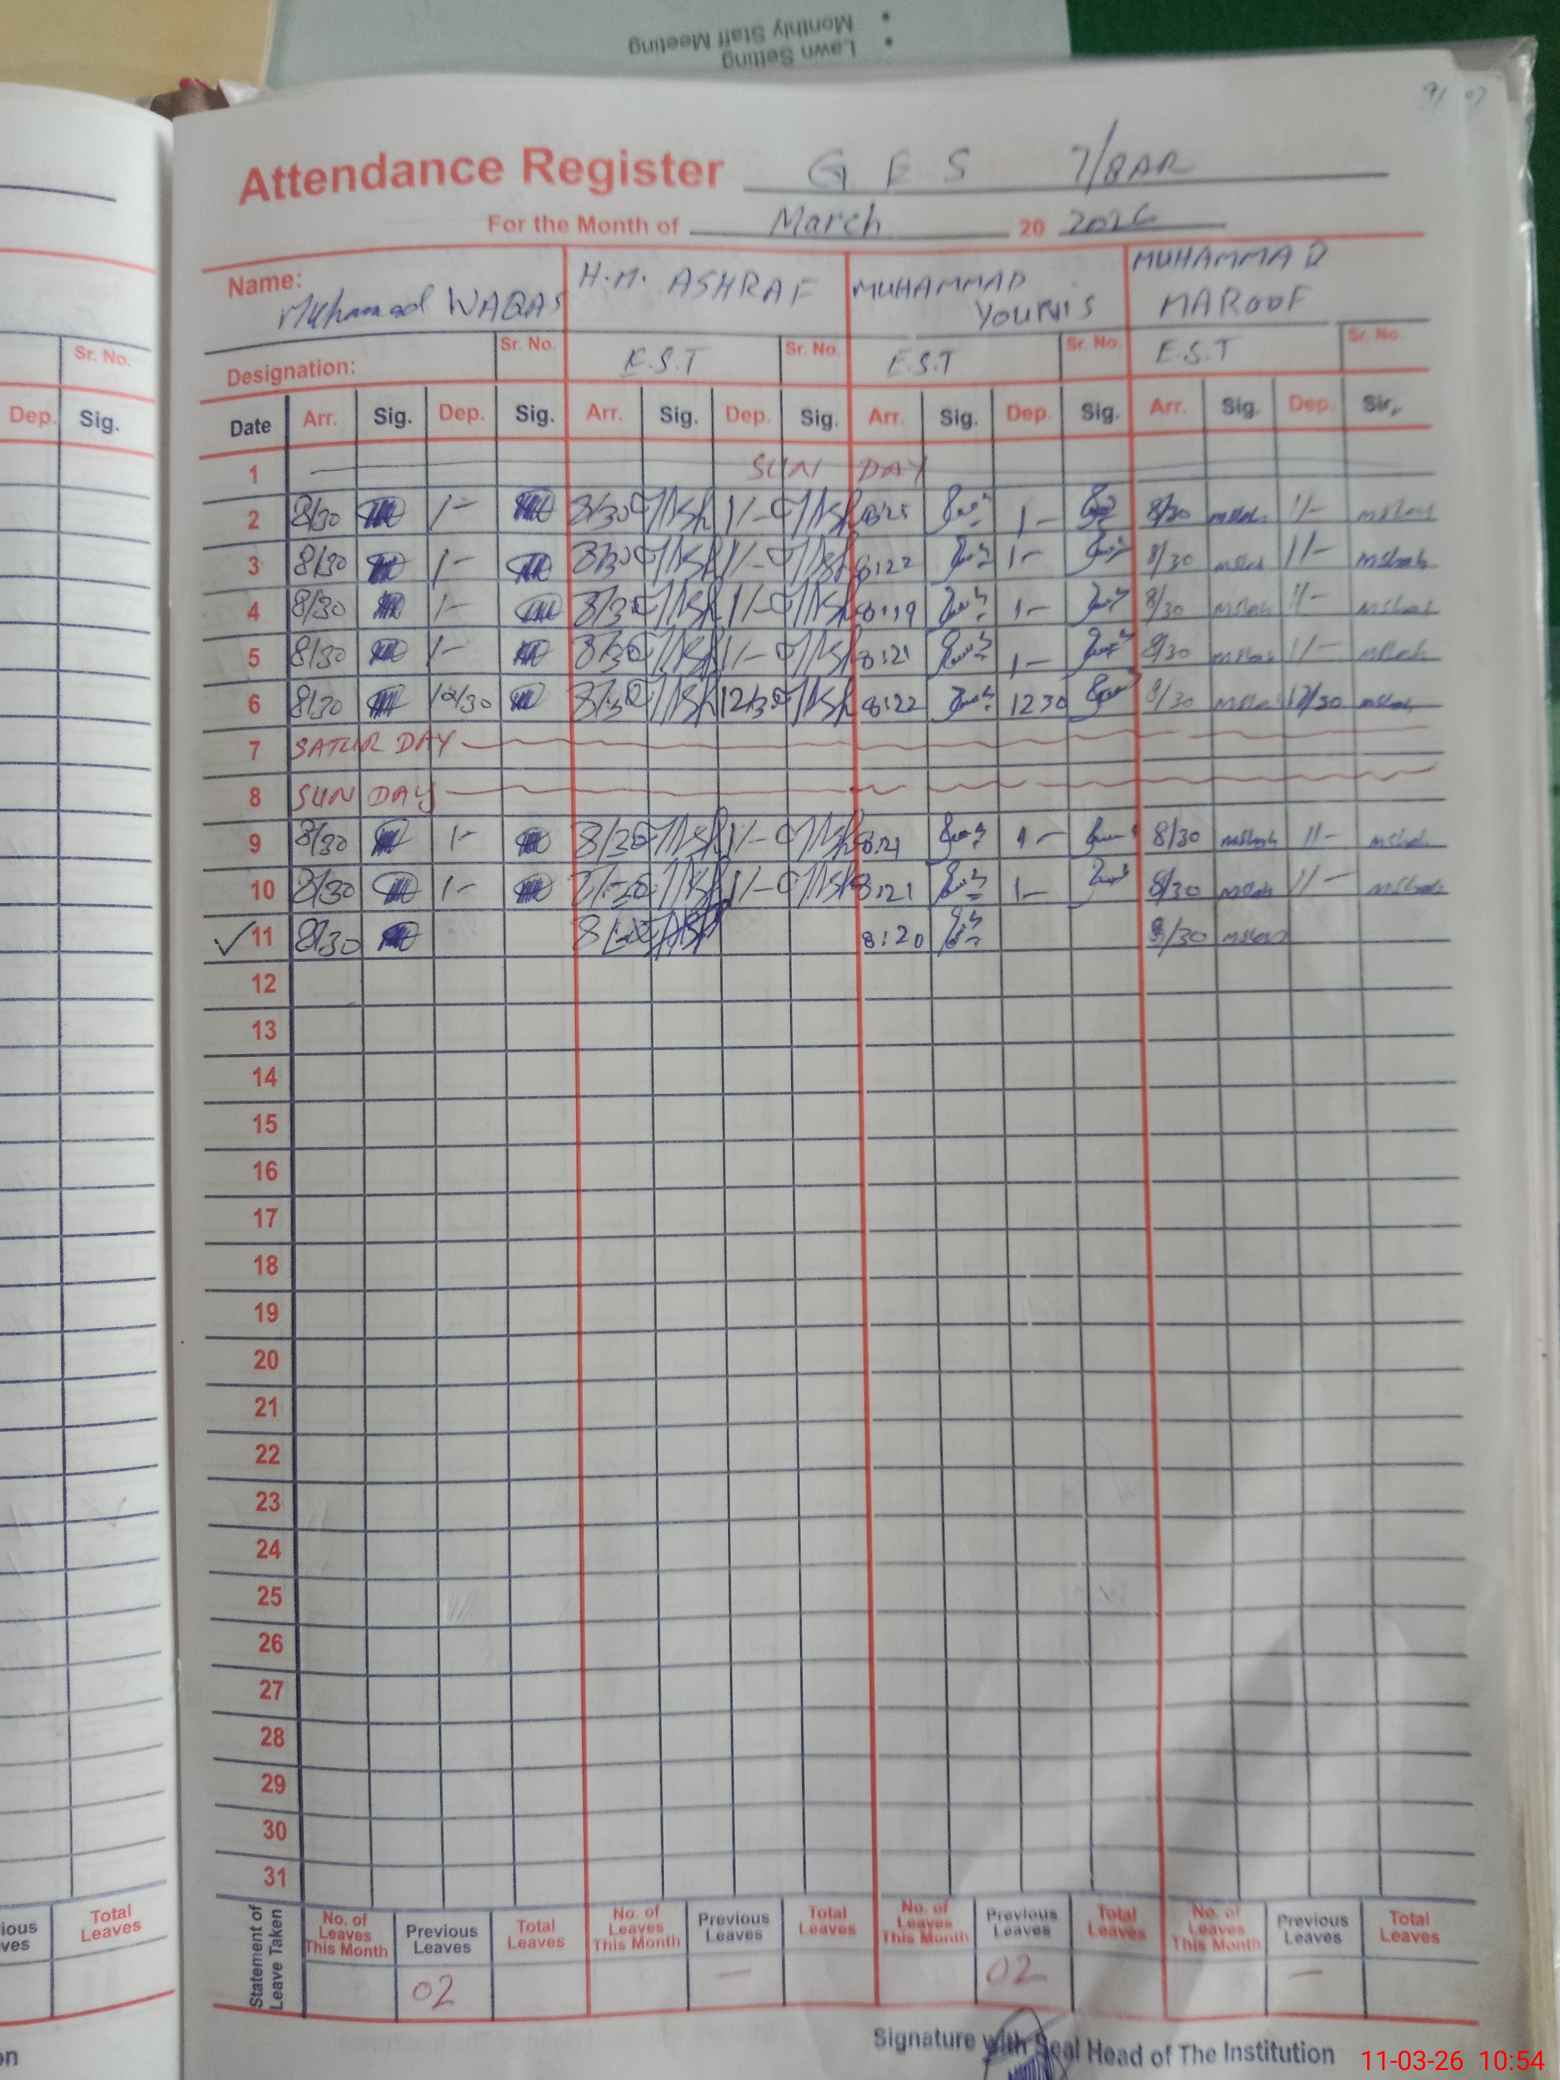 Lawn Setting
Monthly Staff Meeting
Attendance Register G E S 7/8AR
For the Month of March 20 2026
Name: Muhammad WAQAS H.M. ASHRAF MUHAMMAD YOUNIS MUHAMMAD MAROOF
Designation: Sr. No. E.S.T Sr. No. E.S.T Sr. No. E.S.T Sr. No.
Date Arr. Sig. Dep. Sig. Arr. Sig. Dep. Sig. Arr. Sig. Dep. Sig. Arr. Sig. Dep. Sig.
1 SUN DAY
2 8/30 1- 8/30 1/- 1- 8/30 1/-
3 8/30 1- 8/30 1/- 8:22 1- 8/30 1/-
4 8/30 1- 8/30 1/- 8:19 1- 8/30 1/-
5 8/30 1- 8/30 1/- 8:21 1- 8/30 1/-
6 8/30 12/30 8/30 12/30 8:22 12 30 8/30 12/30
7 SATUR DAY
8 SUN DAY
9 8/30 1- 8/30 1/- 8:21 1- 8/30 1/-
10 8/30 1- 8/30 1/- 8:21 1- 8/30 1/-
11 8/30 8:20 8/30
12
13
14
15
16
17
18
19
20
21
22
23
24
25
26
27
28
29
30
31
Statement of Leave Taken No. of Leaves This Month Previous Leaves Total Leaves No. of Leaves This Month Previous Leaves Total Leaves No. of Leaves This Month Previous Leaves Total Leaves No. of Leaves This Month Previous Leaves Total Leaves
02 - 02 -
Signature with Seal Head of The Institution
11-03-26 10:54
Sr. No.
Dep. Sig.
Total Leaves